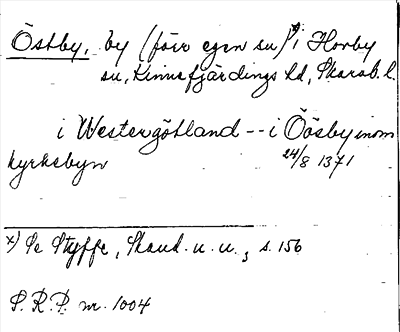 Östby, by (förr egen sn)x) i Hovby
sn, Kinnefjärdings hd, Skarab. l.
i Westergötland -- i Öösby inom
kyrkebyn 24/8 1371
x) Se Styffe, Skand. u. u., s. 156
S.R.P. nr. 1004